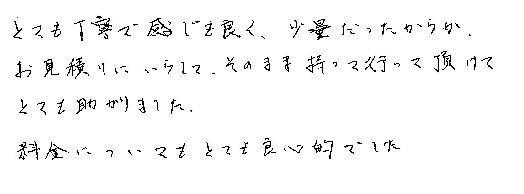 とても丁寧で感じも良く、少量だったからか、
お見積りにいらして、そのまま持って行って頂けて
とても助かりました。
料金についてもとても良心的でした